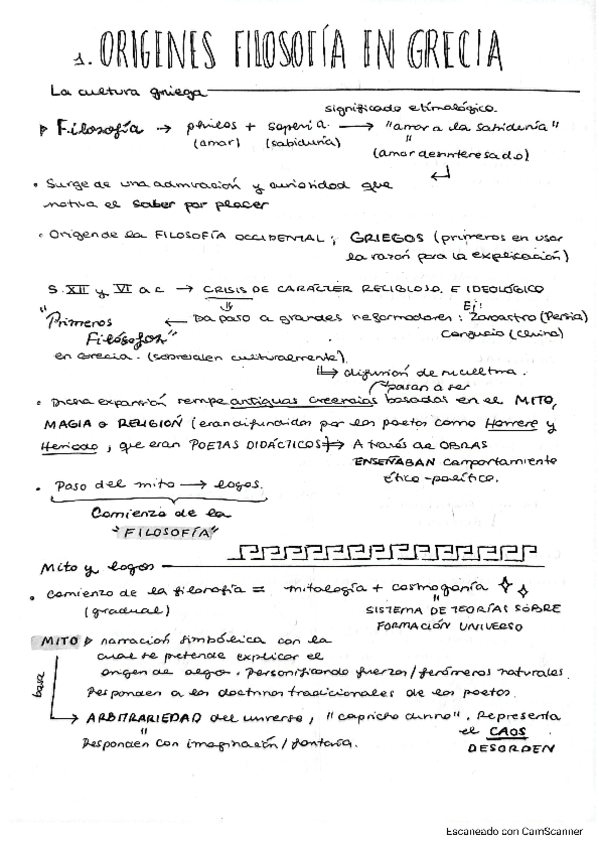 1. ORIGENES FILOSOFÍA EN GRECIA
La cultura griega
significado etimológico.
▷ Filosofía → philos + sophia → "amor a la sabiduría"
(amor) (sabiduría) "
(amor desinteresado)
• Surge de una admiración y curiosidad que
motiva el saber por placer
• Origen de la FILOSOFÍA OCCIDENTAL; GRIEGOS (primeros en usar
la razón para la explicación)
S. XII y VI a.c → CRISIS DE CARÁCTER RELIGIOSO. E IDEOLÓGICO
Ej:
"Primeros ← Da paso a grandes reformadores: Zoroastro (Persia)
Filósofos" Confucio (China)
en Grecia. (sobresalen culturalmente).
↳ difusión de su cultura.
pasan a ser
• Dicha expansión rompe antiguas creencias basadas en el MITO,
MAGIA o RELIGIÓN (eran difundidos por los poetas como Homero y
Hesiodo, que eran POETAS DIDÁCTICOS) → A través de OBRAS
ENSEÑABAN comportamiento
ético-político.
• Paso del mito → logos.
Comienzo de la
"FILOSOFÍA"
Mito y logos
• Comienzo de la filosofía = mitología + cosmogonía
(gradual) SISTEMA DE TEORÍAS SOBRE
FORMACIÓN UNIVERSO
MITO ▷ narración simbólica con la
cual se pretende explicar el
origen de algo. Personificando fuerzas/fenómenos naturales.
Responden a las doctrinas tradicionales de los poetas.
base
→ ARBITRARIEDAD del universo, "capricho divino". Representa
" el CAOS
Responden con imaginación/fantasía. DESORDEN
Escaneado con CamScanner